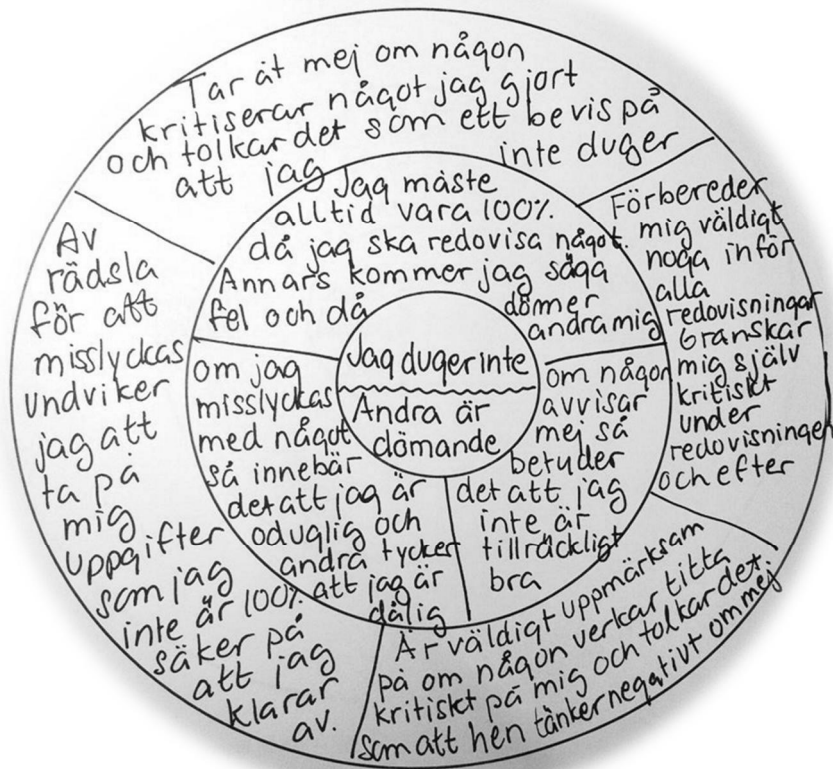 Tar åt mej om någon
kritiserar något jag gjort
och tolkar det som ett bevis på
att jag inte duger
Förbereder
mig väldigt
noga inför
alla
redovisningar
Granskar
mig själv
kritiskt
under
redovisningen
och efter
Är väldigt uppmärksam
på om någon verkar titta
kritiskt på mig och tolkar det
som att hen tänker negativt om mej
Av
rädsla
för att
misslyckas
undviker
jag att
ta på
mig
uppgifter
som jag
inte är 100%
säker på
att jag
klarar
av.
Jag måste
alltid vara 100%
då jag ska redovisa något.
Annars kommer jag säga
fel och då dömer
andra mig
om någon
avvisar
mej så
betyder
det att jag
inte är
tillräckligt
bra
om jag
misslyckas
med något
så innebär
det att jag är
oduglig och
andra tycker
att jag är
dålig
Jag duger inte
Andra är
dömande